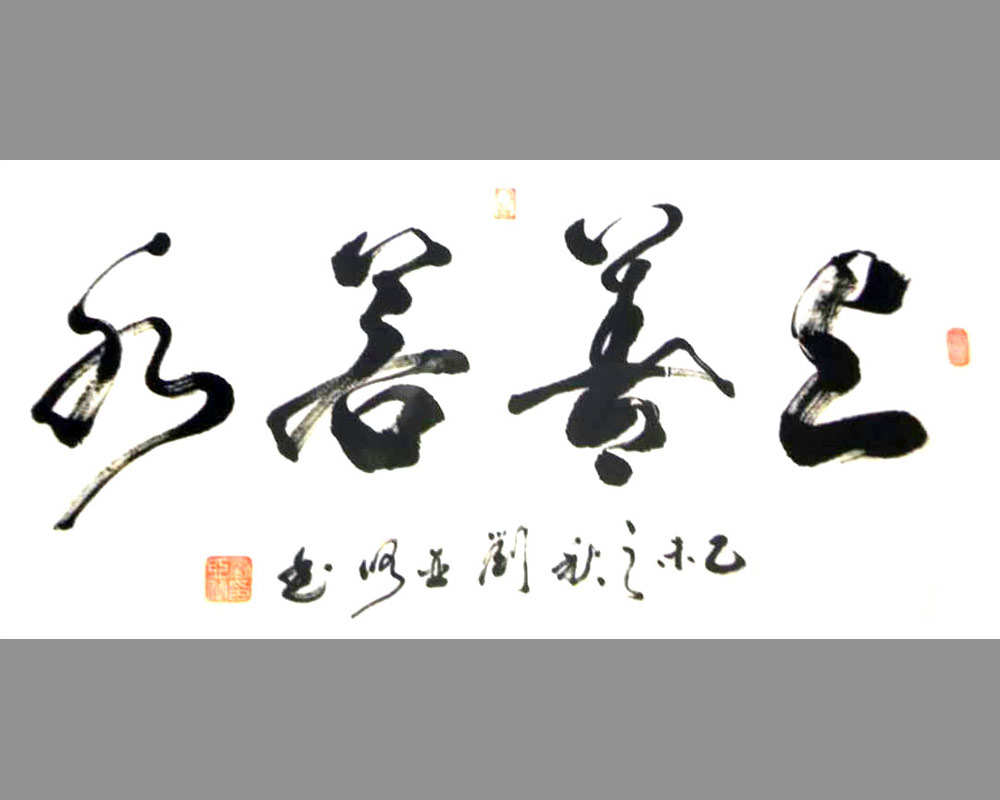 上善若水
乙未之秋劉亚明书